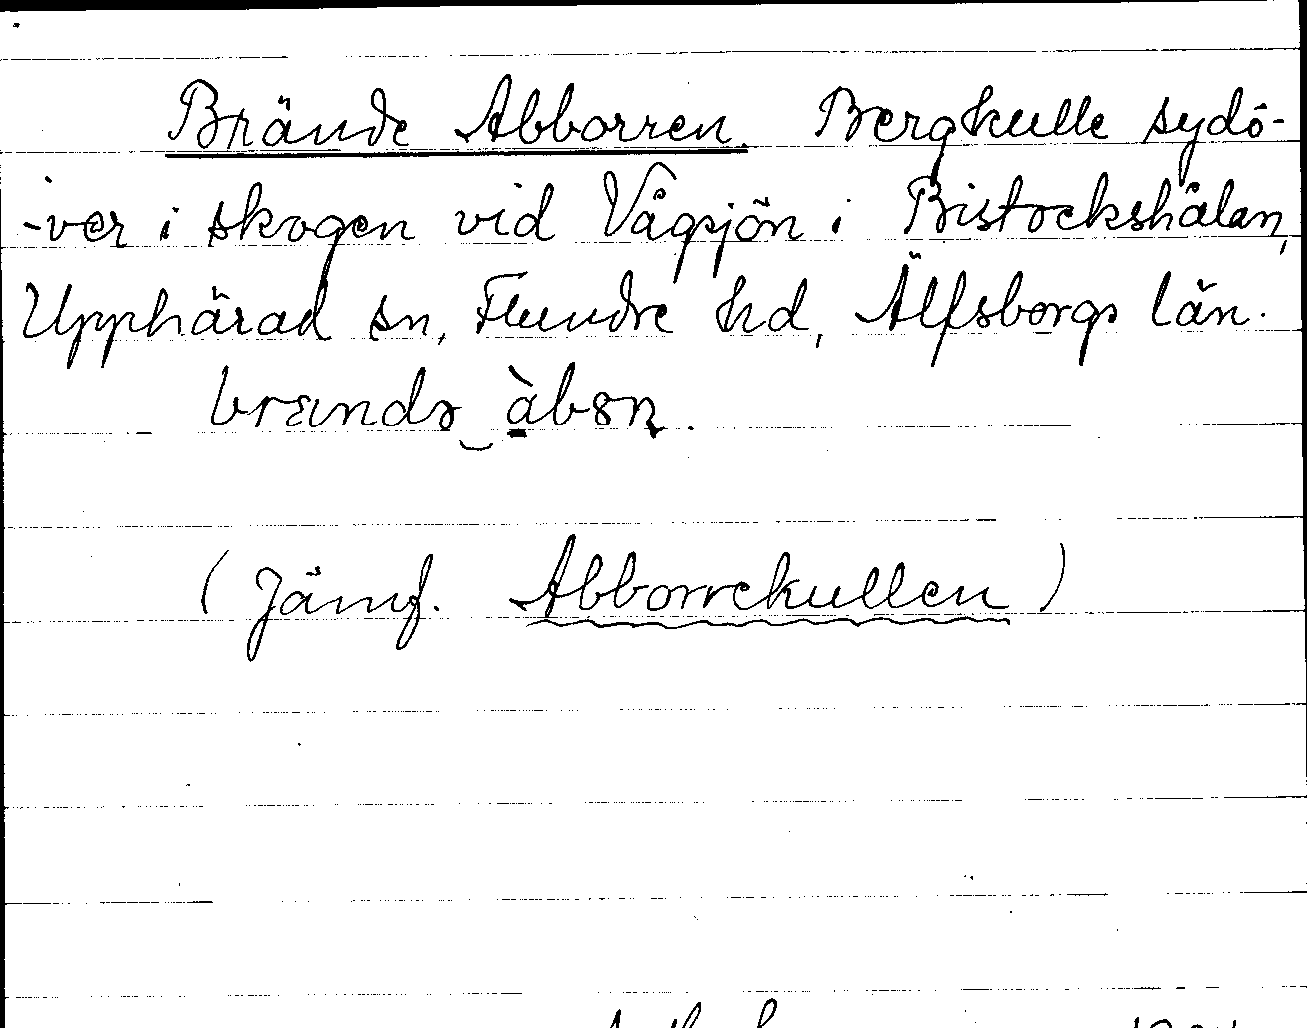 Brände Abborren. Bergkulle sydö-
-ver i skogen vid Vågsjön i Bistockshålan,
Upphärad sn, Flundre hd, Älfsborgs län.
(Jämf. Abborrekullen)